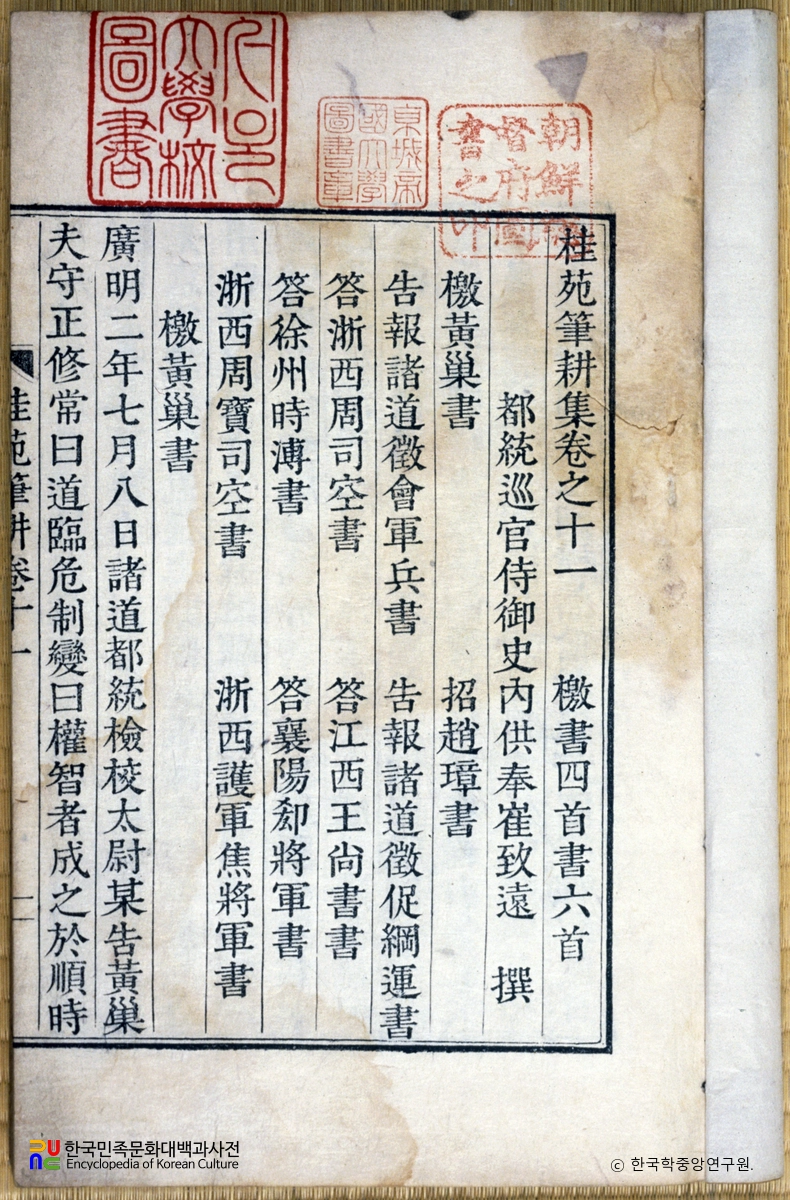 서울大學校圖書
東城帝國大學圖書章
朝鮮總督府圖書之印
桂苑筆耕集卷之十一 檄書四首書六首
都統巡官侍御史內供奉崔致遠 撰
檄黃巢書 招趙璋書
告報諸道徵會軍兵書 告報諸道徵促綱運書
答浙西周司空書 答江西王尙書書
答徐州時溥書 答襄陽郄將軍書
浙西周寶司空書 浙西護軍焦將軍書
檄黃巢書
廣明二年七月八日諸道都統檢校太尉某告黃巢
夫守正修常曰道臨危制變曰權智者成之於順時
桂苑筆耕卷十一
一
한국민족문화대백과사전
Encyclopedia of Korean Culture
© 한국학중앙연구원.